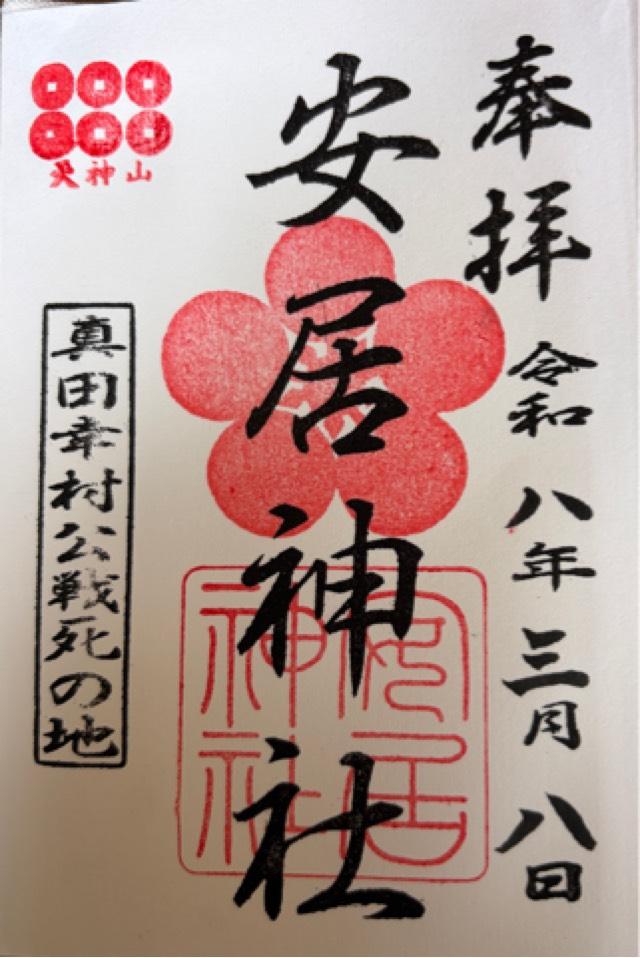 奉拝
令和八年三月八日
安居神社
安居
神社
天神山
真田幸村公戦死の地